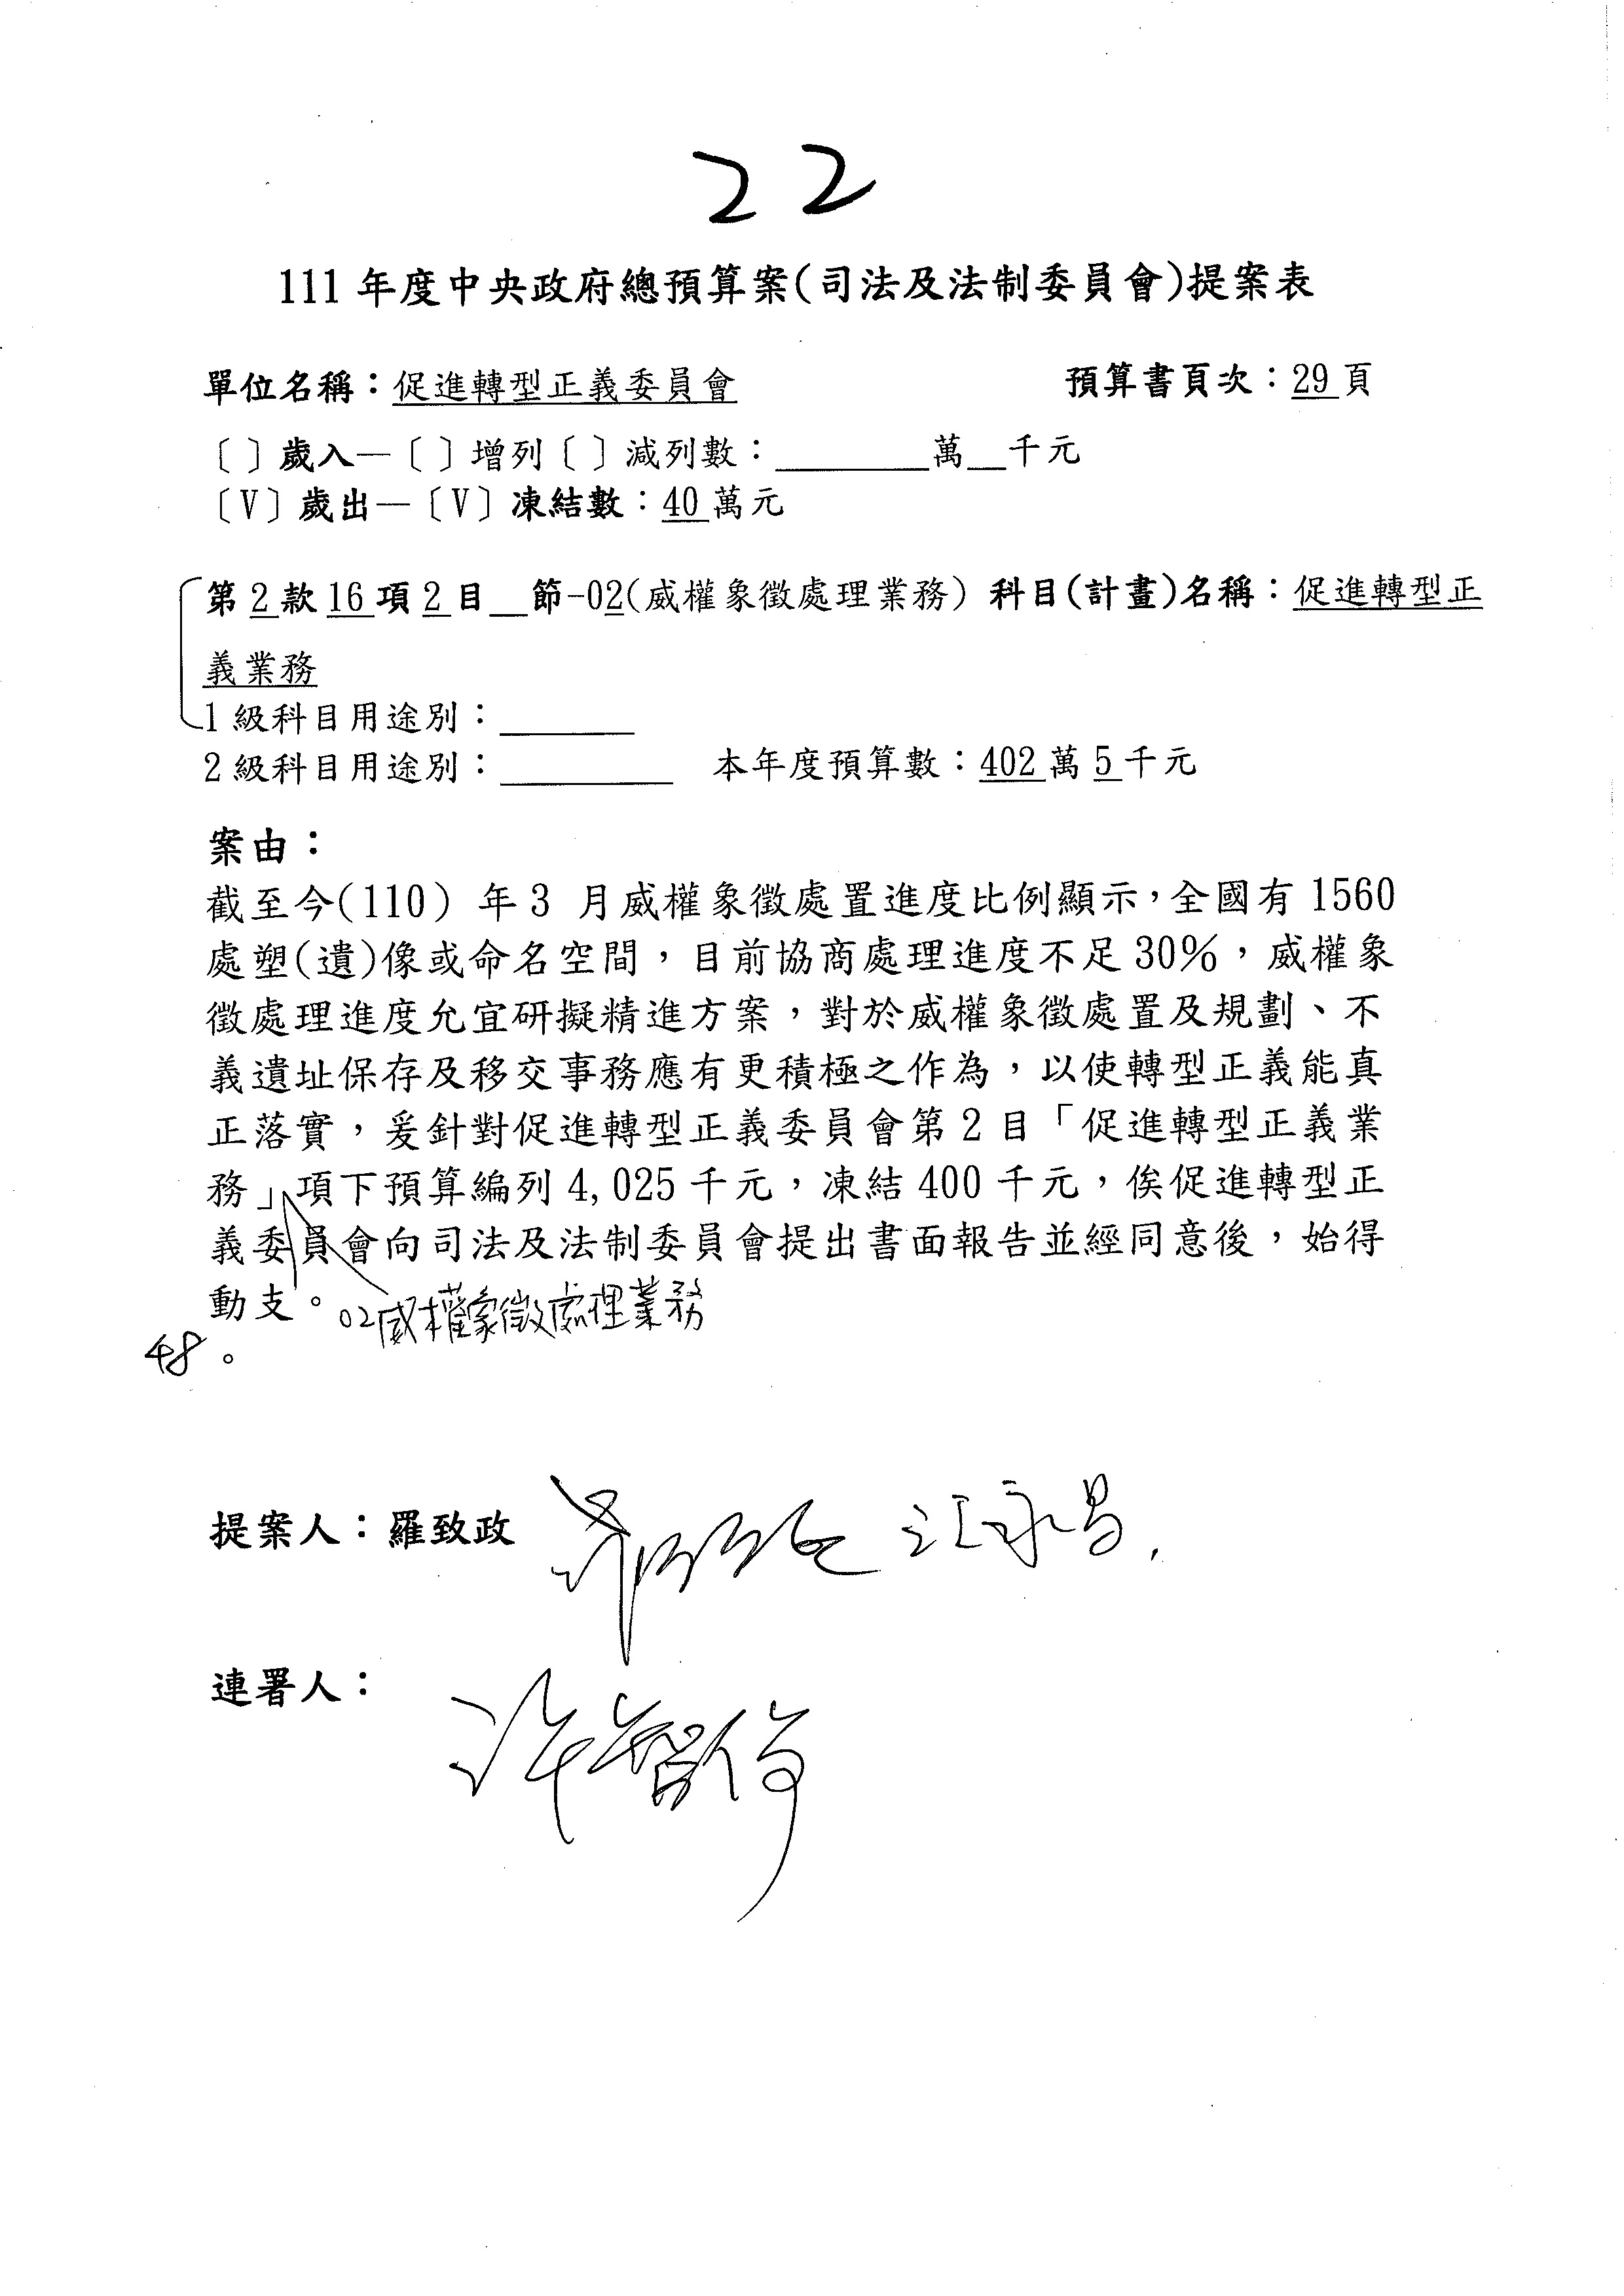 22
111年度中央政府總預算案(司法及法制委員會)提案表
單位名稱：促進轉型正義委員會 預算書頁次：29頁
〔 〕歲入—〔 〕增列〔 〕減列數：________萬__千元
〔V〕歲出—〔V〕凍結數：40萬元
第2款16項2目__節-02(威權象徵處理業務) 科目(計畫)名稱：促進轉型正
義業務
1級科目用途別：_______
2級科目用途別：_________ 本年度預算數：402萬5千元
案由：
截至今(110) 年3 月威權象徵處置進度比例顯示，全國有1560
處塑(遺)像或命名空間，目前協商處理進度不足30%，威權象
徵處理進度允宜研擬精進方案，對於威權象徵處置及規劃、不
義遺址保存及移交事務應有更積極之作為，以使轉型正義能真
正落實，爰針對促進轉型正義委員會第2目「促進轉型正義業
務」項下預算編列4,025千元，凍結400千元，俟促進轉型正
義委員會向司法及法制委員會提出書面報告並經同意後，始得
動支。
02威權象徵處理業務
48。
提案人：羅致政 江永昌
連署人：